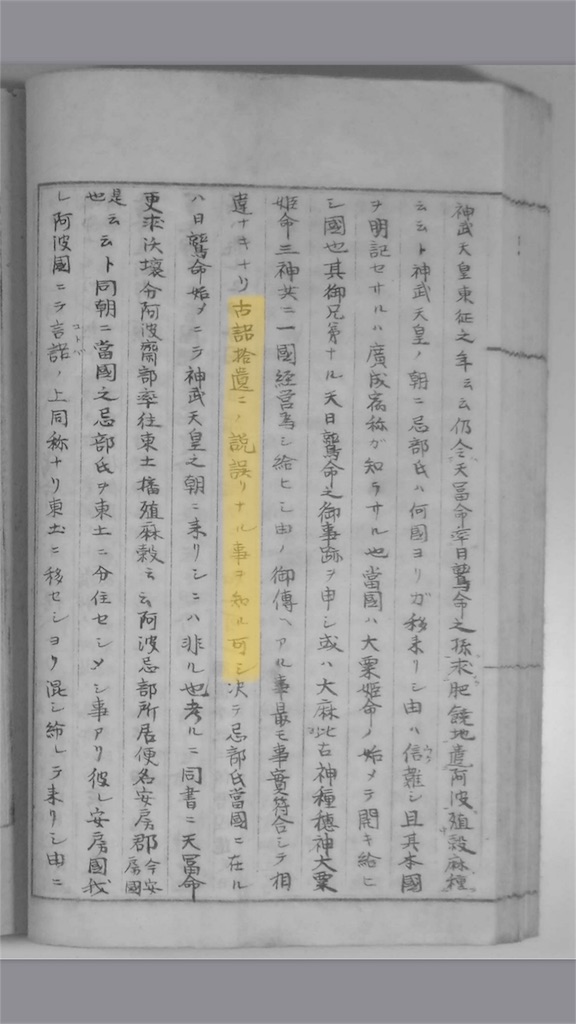 神武天皇東征之年云云仍令天冨命率日鷲命之孫求肥饒地遣阿波殖穀麻種
云云ト神武天皇ノ朝ニ忌部氏ハ何國ヨリガ移来リシ由ハ信難シ且其本國
ヲ明記セサルハ廣成宿祢が知ラサル也當國ハ大粟姫命ノ始メテ開キ給ヒ
シ國也其御兄弟ナル天日鷲命之御事跡ヲ申シ或ハ大麻比古神種穂神大粟
姫命三神共ニ一國経営為シ給ヒシ由ノ御傳ヘアル事最モ事實符合シテ相
違ナキナリ古語拾遺ニノ説誤リナル事ヲ知ル可シ决テ忌部氏當國ニ在ル
ハ日鷲命始メニテ神武天皇之朝ニ来リシニハ非ル也考ルニ同書ニ天冨命
更求沃壌分阿波齋部率往東土播殖麻穀云云阿波忌部所居便名安房郡今安房國
是也云云ト同朝ニ當國之忌部氏ヲ東土ニ分住セシメシ事アリ彼レ安房國我
レ阿波國ニテ言語コトバノ上同称ナリ東土ニ移セシヨリ混シ紛レテ来リシ由ニ